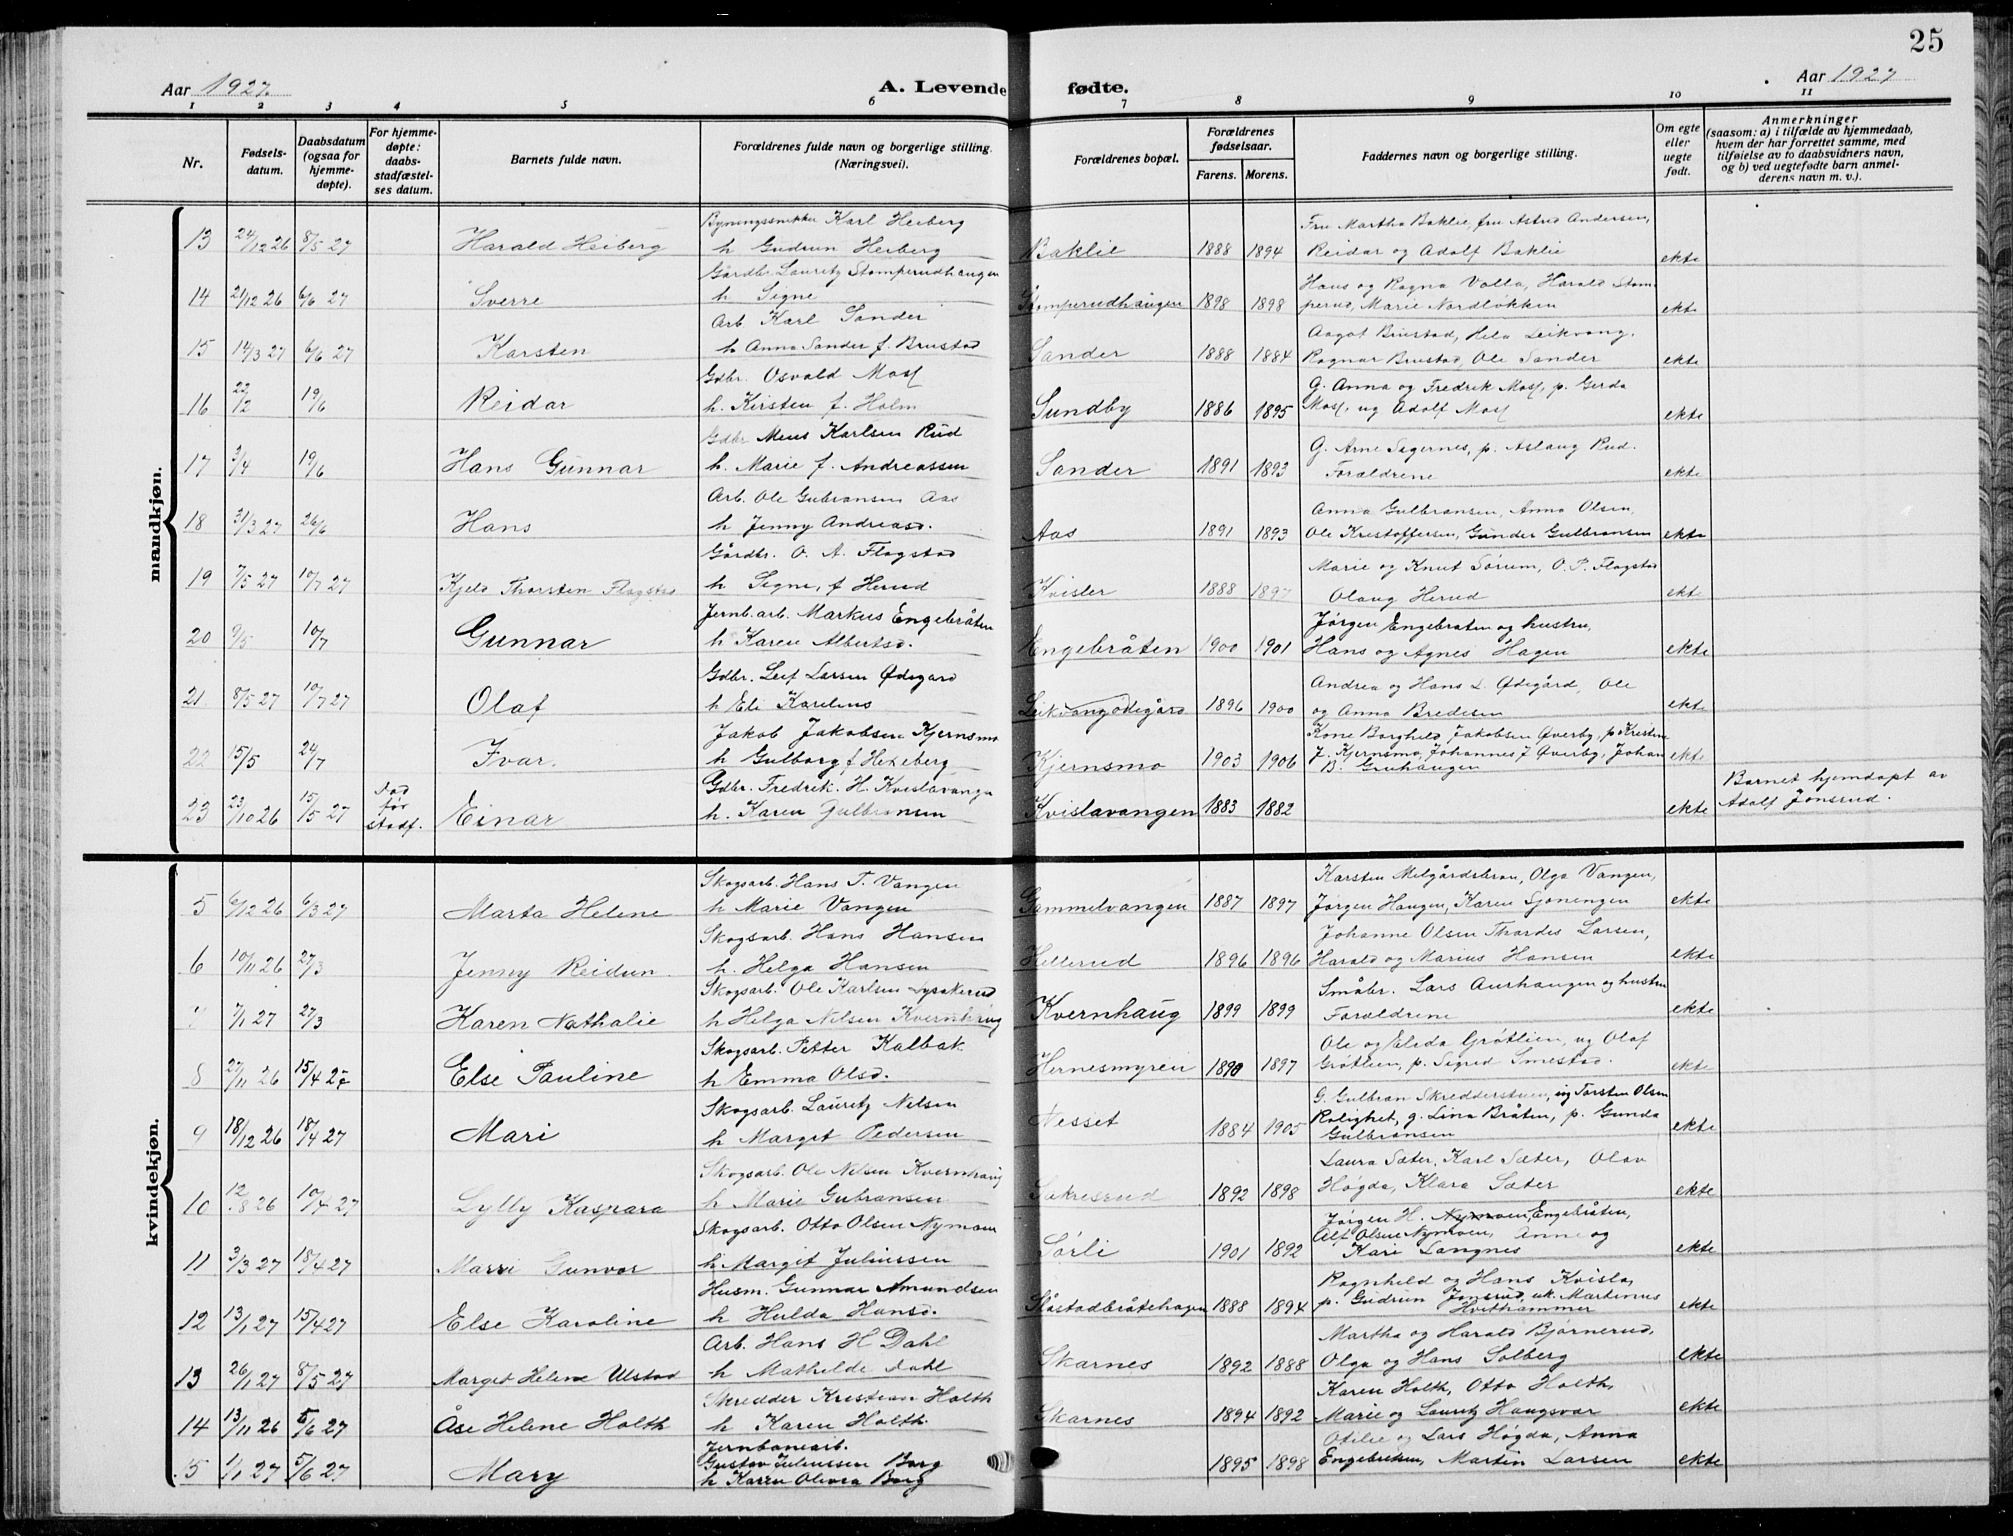 25
Aar 1927. A. Levende fødte. Aar 1927
1 2 3 4 5 6 7 8 9 10 11
Nr. Fødsels-datum. Daabsdatum (ogsaa for hjemme-døpte). For hjemme-døpte: daabs-stadfæstel-ses datum. Barnets fulde navn. Forældrenes fulde navn og borgerlige stilling. (Næringsvei). Forældrenes bopæl. Forældrenes fødselsaar. Farens. Morens. Faddernes navn og borgerlige stilling. Om egte eller uegte født. Anmerkninger (saasom: a) i tilfælde av hjemmedaab, hvem der har forrettet samme, med tilføielse av to daabsvidners navn, og b) ved uegtefødte barn anmel-derens navn m. v.).
mandkjøn.
Karl Heiberg Fru Martha Baklie, fru Astrid Andersen,
13 24/12 26 8/5 27 Harald Heiberg h Gudrun Heiberg Baklie 1888 1894 Reidar og Adolf Baklie ekte
Gårdbr. Lauritz Stomperudhaugen Hans og Ragna Volla, Harald Stom-
14 21/12 26 6/6 27 Sverre h Signe Stomperudhaugen 1898 1898 perud, Marie Nordløkken ekte
Arb. Karl Sander Aagot Brustad, Leikvang,
15 14/3 27 6/6 27 Karsten h Anna Sander f. Brustad Sander 1888 1884 Ragnar Brustad, Ole Sander ekte
Gdbr. Osvald Mosf G. Anna og Fredrik Mosf, p. Gerda
16 22/2 19/6 Reidar h. Kirsten f. Holm Sundby 1886 1895 Mosf, ug Adolf Mosf ekte
Gdbr Karlsen Rud G. Arne Sagernes, p. Aslaug Rud.
17 3/4 19/6 Hans Gunnar h. Marie f. Andreassen Sander 1891 1893 Forældrene ekte
Arb. Ole Gubransen Aas Anna Gulbransen, Anna Olsen,
18 31/3 27 26/6 Hans h Jenny Andreasd. Aas 1891 1893 Ole Kristoffersen, Gunder Gulbransen ekte
Gårdbr. O. A. Flagstad Marie og Knut Sørum, O. P. Flagstad
19 7/5 27 10/7 27 Kjeld Thorsten Flagstad h Signe, f Herud Kvisler 1888 1897 Olaug Herud ekt
Jernb.arb. Markus Engebråten Jørgen Engebråten og hustru,
20 9/5 10/7 Gunnar h Karen Albertsd. Engebråten 1900 1901 Hans og Agnes Hagen ekte
Gdbr. Leif Larsen Ødegård Andrea og Hans L. Ødegård, Ole
21 8/5 27 10/7 27 Olaf h Eli Karelius Leikvangødegård 1896 1900 og Anna Bredesen ekte
Jakob Jakobsen Kjernsmo Kone Borghild Jakobsen Øverby, p Kristine
22 15/5 24/7 Ivar. h Gulborg f Hexeberg Kjernsmo 1903 1906 J. Kjernsmo, Johannes J Øverby, Johan ekte
B. Gruhaugen
Død før stadf. Gdbr. Fredrik H. Kvislavangen Barnet hjemdøpt av
23 23/10 26 15/5 27 Einar h. Karen Gulbransen Kvislavangen 1883 1882 ekte Adolf Jonsrud.
kvindekjøn.
Skogsarb. Hans T. Vangen Karsten Melgårdsbron, Olga Vangen,
5 6/12 26 6/3 27 Marta Helene h Marie Vangen Gammelvangen 1887 1897 Jørgen Haugen, Karen Sjøningen ekte
Skogsarb. Hans Hansen Johanne Olsen Thordis Larsen,
6 10/11 26 27/3 Jenny Reidun h. Helga Hansen Hellerud 1896 1896 Harald og Marius Hansen ekte
Skogsarb. Ole Karlsen Lysakerud Småbr. Lars Aurhaugen og hustru
7 7/1 27 27/3 Karen Nathalie h Helga Nilsen Kvernhaug Kvernhaug 1899 1899 Forældrene ekte
Skogsarb. Petter Kalbak Ole og Elida Grøtlien, ug Olaf
8 27/11 26 15/4 27 Else Pauline h Emma Olsd. Hernesmyren 1890 1897 Grøtlien, p. Sigrid Smestad. ekte
Skogsarb. Lauritz Nilsen G. Gulbran Skredderstuen, ug Torsten Olsen
9 18/12 26 18/4 27 Mari h Margit Pedersen Nesset 1884 1905 Rolighet, g. Lina Bråten, p. Gunda ekte
Gulbransen
Skogsarb. Ole Nilsen Kvernhaug Laura Sæter, Karl Sæter, Olav
10 12/8 26 10/4 27 Lylly Kaspara h Marie Gubransen 1892 1898 Høgda, Klara Sæter ekte
Skogsarb. Otto Olsen Nymoen Jørgen H. Nymoen, Engebråten,
Alf Olsen Nymoen, Anne og
11 3/3 27 18/4 27 Gunvor h Margit Juliussen Sørli 1901 1892 Kari Langnes ekte
Husm. Gunnar Amundsen Ragnhild og Hans Kvisla,
12 13/1 27 15/4 27 Else Karoline h Hulda Hansd. Slåstadbråtehagen 1888 1894 p. Gudrun Jonsrud, uk. Martinius ekte
Hvithammer
Arb. Hans H Dahl Martha og Harald Bjørnerud,
13 26/1 27 8/5 27 Margit Helene Ulstad h Mathilde Dahl Skarnes 1892 1888 Olga og Hans Solberg ekte
Skredder Kristian Holth Karen Holth, Otto Holth,
14 13/11 26 5/6 27 Åse Helene Holth h Karen Holth. Skarnes 1894 1892 Marie og Lauritz Haugsvar ekte
Jernbanearb. Otilie og Lars Høgda, Anna
Gustav Juliussen Borg
15 1/1 27 5/6 27 Mary h Karen Olivia Borg 1895 1898 Engebretsen, Martin Larsen ekte